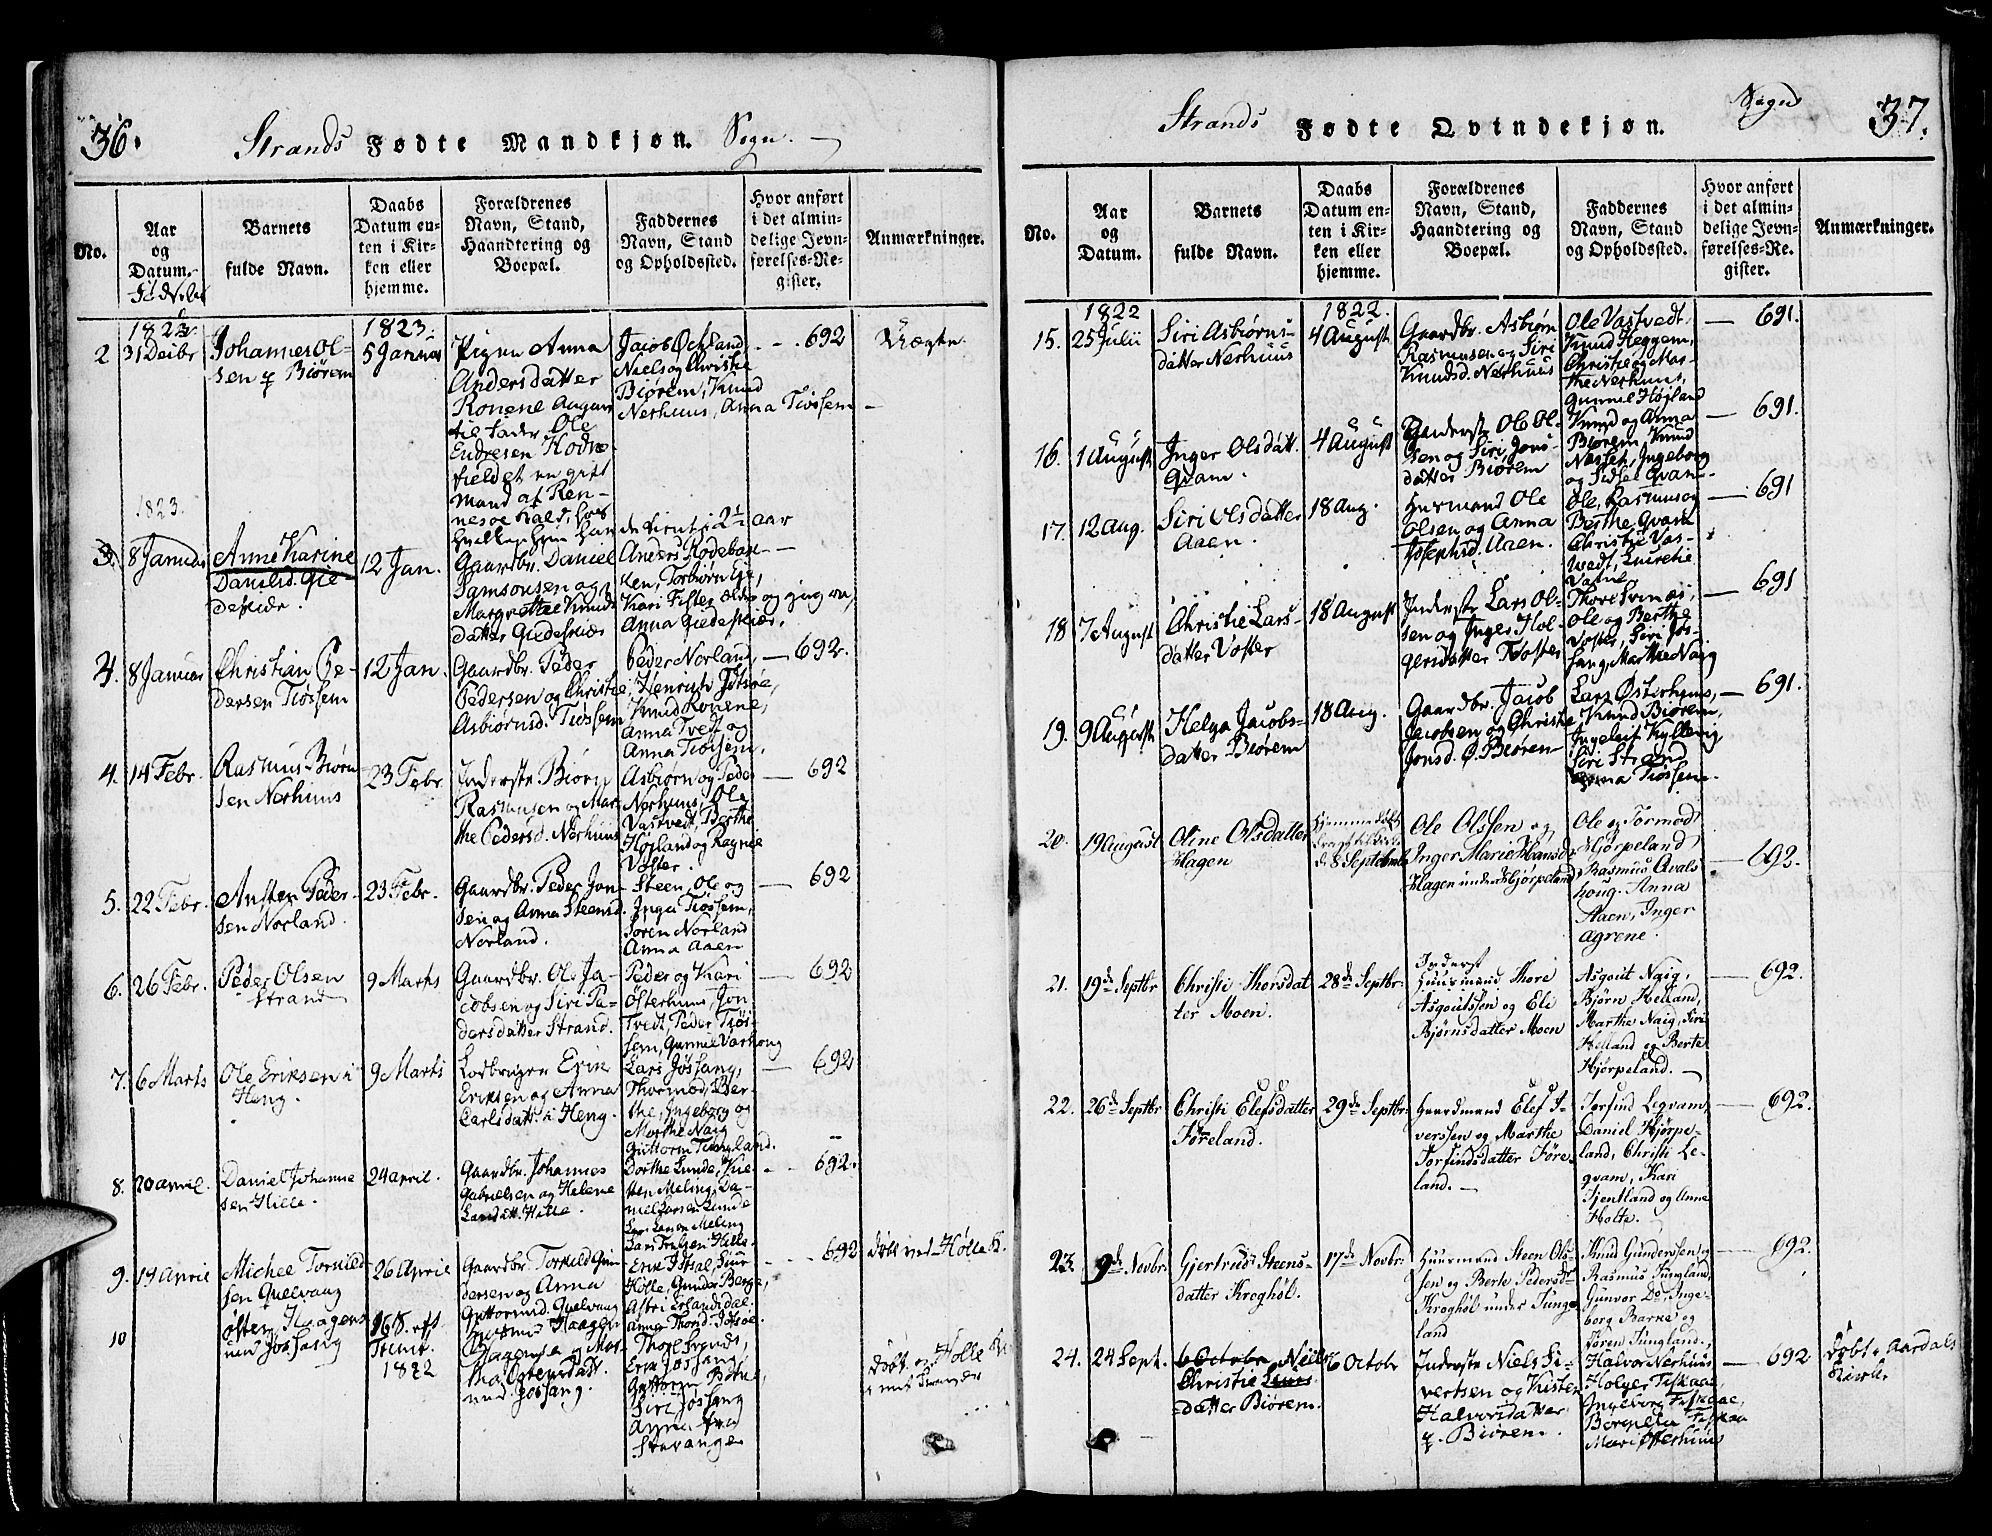 36.
Strands Fødte Mandkjøn. Sogn.
No.
Aar
og
Datum.
Barnets
fulde Navn.
Daabs
Datum en-
ten i Kir-
ken eller
hjemme.
Forældrenes
Navn, Stand,
Haandtering og
Boepæl.
Faddernes
Navn, Stand
og Opholdssted.
Hvor anført
i det almin-
delige Jevn-
førelses-Re-
gister.
Anmærkninger.
2
31 Decbr
Johannes Ol-
sen Biørem
1823.
5 Januar
Pigen Anna
Andersdatter
Ronene Angiven
til fader Ole
Endresen Hodne
fieldet en gift
Mand af Ren-
nesøe
Jacob Østland
Niels og Christie
Biørem, Knud
Nerhuus, Anna Tiøssem
692
Uægte.
1823.
3.
8 Januar
Anne Karine
Danielsd. Gie-
deskiær.
12 Jan.
Gaardbr. Daniel
Samsonsen og
Margrethe Knuds
datter Giedeskiær
Anders Rodebak-
ken, Torbiørn Eie,
Kari Fister
Anna Giedeskiær.
4.
8 Januar
Christian Pe-
dersen Tiøssem
12 Jan.
Gaardbr. Peder
Pedersen og Christie
Asbiørnsd. Tiøssem
Peder Norland,
Henrich Idsøe,
Knud Ronene,
Anna Tvedt og
Anna Tiøssem.
692.
4.
14 Febr.
Rasmus Biørn
sen Nerhuus
23 Febr
Inderste Biørn
Rasmusen og Mar-
the Pedersd. Nerhuus
Asbiørn og Peder
Nerhuus, Ole
Vastvedt, Berthe
Højland og Ragnie
Voster.
692
5.
22 Febr.
Austen Peder-
sen Norland.
23 Febr.
Gaardbr. Peder Jon-
sen og Anna Steensd.
Norland.
Steen, Ole og
Inger Tiøssem,
Søren Norland
Anna Aaen
692
6.
26 Febr.
Peder Olsen
Strand
9 Marts
Gaardbr. Ole Ja-
cobsen og Siri Pe-
dersdatter Strand.
Peder og Kari
Østerhuus, Jon
Tvedt, Peder Tiøs-
sem, Gunnil Varhoug
692
7.
6 Marts
Ole Eriksen i
Heng.
9 Marts
Lodbrugen Erik
Eriksen og Anna
Carlsdatt. i Heng.
Lars Jøssang,
Thormod, Ber-
the, Ingeborg og
Marthe Naig
Guttorm Tungland.
692
8.
20 April.
Daniel Johanne
sen Hille.
24 April.
Gaardbr. Johannes
Gabrielsen og Helene
Larsdatt. Hille.
Dorthe Lunde,
Meling, Da-
niel Larsen Lunde
Lars Larsen Meling
Hille.
692.
9.
19 April
Michel Torkild
sen Quelvang
26 April
Gaardbr. Torkild Gun
dersen og Anna
Guttormsd. Quelvang
Erik Idsal
Holle, Gunder Berge,
Astri Erlandsdal.
Anna Thorsd. Idsøe.
692
døbt ved Holle K.
10
Østen Haagens
sen Jøssang
16 S. eft.
Trinit.
1822
Haagen
Haagense og Mar-
tha Ostensdatt.
Jøssang.
Thore
Erik Jøssang
Guttorm Bøtne,
Siri Jøssang
Anna fra
Stavanger
døbt Holle

37.
Strands Fødte Qvindekjøn. Sogn
No.
Aar
og
Datum.
Barnets
fulde Navn.
Daabs
Datum en-
ten i Kir-
ken eller
hjemme.
Forældrenes
Navn, Stand,
Haandtering og
Boepæl.
Faddernes
Navn, Stand
og Opholdssted.
Hvor anført
i det almin-
delige Jevn-
førelses-Re-
gister.
Anmærkninger.
15.
1822
25 Julii
Siri Asbiørns-
datter Nerhuus
1822.
4 August
Gaardbr. Asbiørn
Rasmusen og Siri
Knudsd. Nerhuus
Ole Vastvedt,
Knud Heggem,
Christie og Mar-
the Nerhuus,
Gunnil Højland
691.
16.
1 August
Inger Olsdatt.
Qvam.
4 August
Inderste Ole Ol-
sen og Siri Jons-
datter Biørem
Knud og Anna
Biørem, Knud
Nesset, Ingeborg
og Sidsel Qvam
691.
17.
12 Aug.
Siri Olsdatter
Aaen.
18 Aug.
Huusmand Ole
Olsen og Anna
Josephsd. Aaen.
Ole, Rasmus og
Berthe Qvam
Christie Vas-
tvedt, Lucretie
Vatne
691
18
7 August
Christie Lars-
datter Voster
18 August
Inderste Lars Ol-
sen og Inger Hol-
gersdatter Voster
Thore
Ole og Berthe
Voster, Siri Jøs-
sang, Marthe Naig
691
19.
9 August
Helga Jacobs-
datter Biørem
18 Aug.
Gaardbr. Jacob
Jacobsen og Christie
Jonsd. Biørem
Lars Østerhuus,
Knud Biørem,
Ingeleif Kylleng
Siri Strand
Anna Tiøssem.
691.
20.
19 August
Oline Olsdatter
Hagen
Hjemmedøbt
d. 8 Septemb
Ole Olssen og
Inger Marie Hansd.
Hagen under Hjørpeland
Ole og Tormod
Hjørpeland
Rasmus Qvals
houg. Anna
Aaen, Inger
Agrene.
692.
21.
19de Septbr
Christi Thorsdat
ter Moen.
28de Septbr.
Inderst
Huusmand Thore
Asgoutssen og Eli
Bjørnsdatter Moen
Asgout Naig,
Bjørn Helland,
Marthe Naig, Siri
Helland og Berte
Hjørpeland.
692.
22.
26de Septbr
Christi Elefsdatter
Føreland.
29de Septbr.
Gaardmand Elef I-
verssen og Marthe
Torfindsdatter Føre-
land.
Torfind Legvam,
Daniel Hjørpe-
land, Christi Le-
gvam, Kari
Fjentland og Anne
Holte.
692.
23.
9de Novbr.
Gjertrud Steens-
datter Kroghøl.
17de Novbr.
Huusmand Steen Ols-
sen og Berte Pedersdr
Kroghøl under Tung
land
Knud Gunderssen og
Rasmus Tungland,
Gunvor Dør. Inge-
borg Barke og
Søren Tungland.
692.
24.
24 Sept.
6 Octobr Niels
Christie
datter Biørem.
6 Octobr
Inderste Niels Si-
vertsen og Kisten
Halvorsdatter
Biørem.
Halvor Nerhuus
Holger Fiskaae
Ingeborg Fiskaae,
Fiskaa
Mari Østerhuus
692
Døbt i Aardals
Kirke.